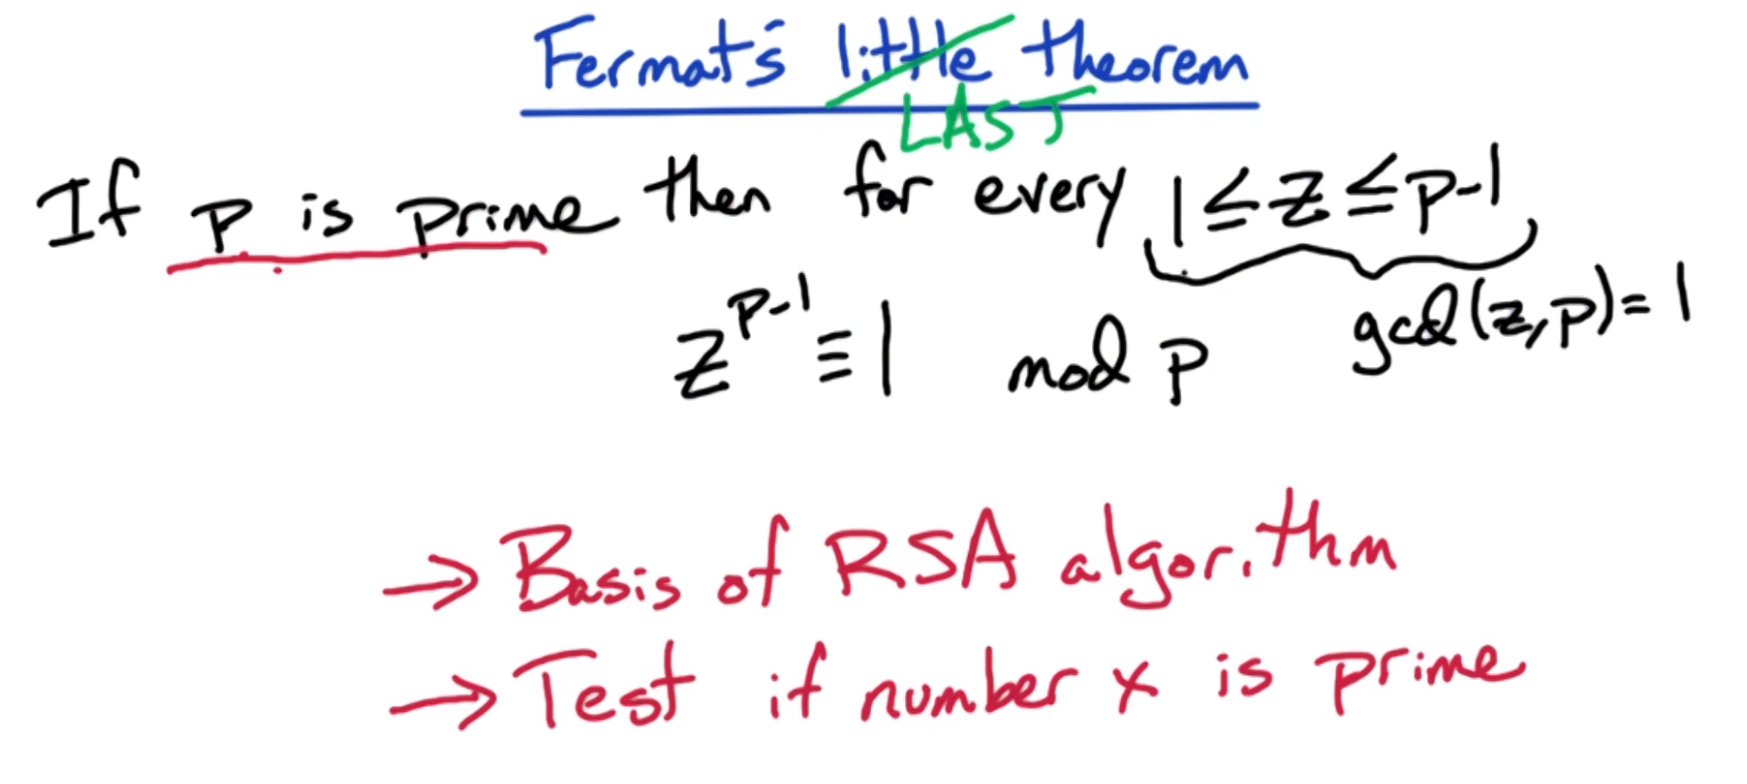 Fermat's little theorem
LAST
If p is prime then for every 1 ≤ z ≤ p-1
z^{p-1} ≡ 1 mod p gcd(z,p) = 1
→ Basis of RSA algorithm
→ Test if number x is prime